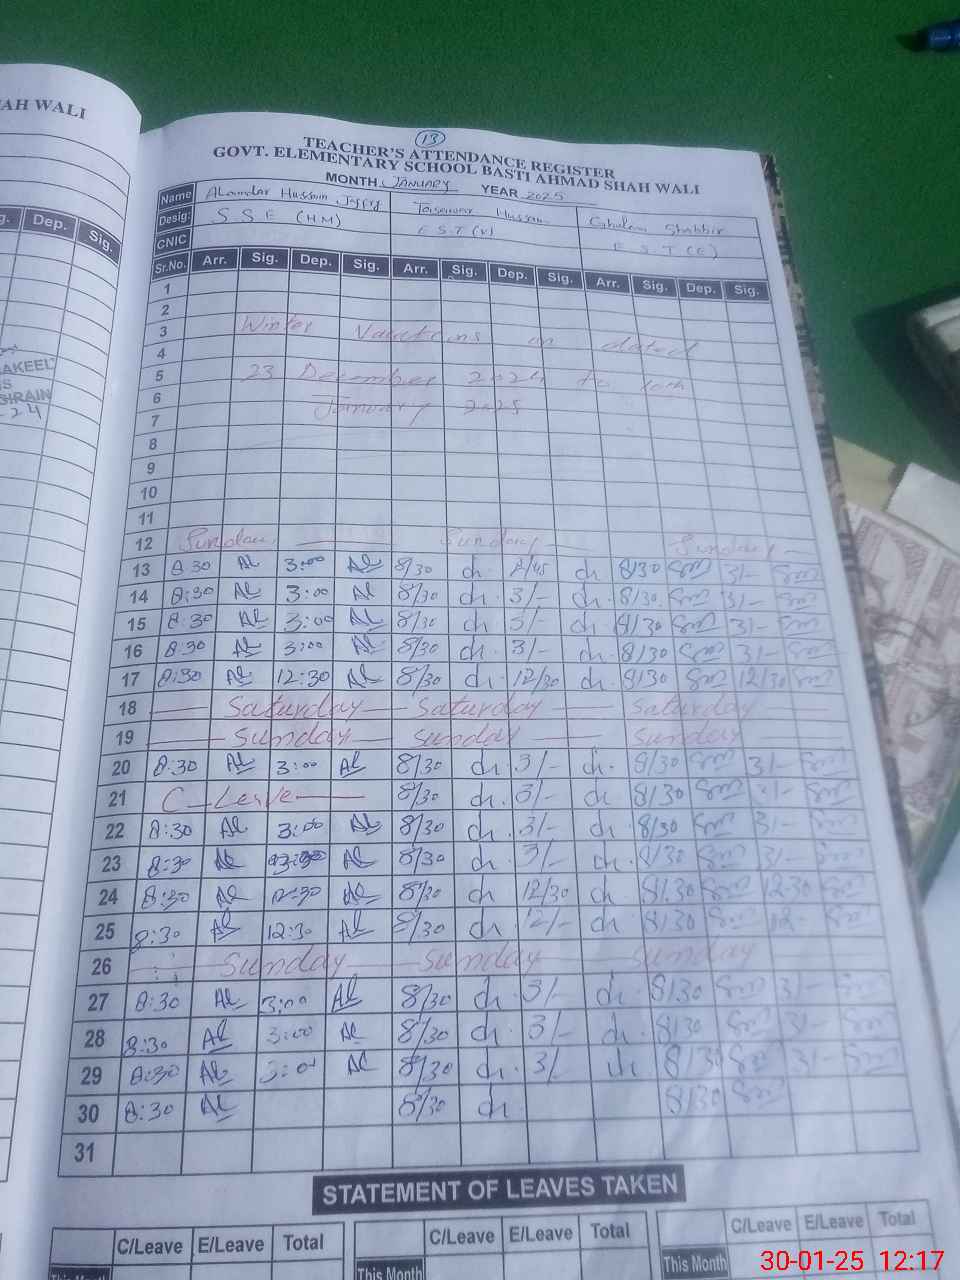 AH WALI
Dep.
Sig.
13
TEACHER'S ATTENDANCE REGISTER
GOVT. ELEMENTARY SCHOOL BASTI AHMAD SHAH WALI
MONTH JANUARY YEAR 2025
Name Hussain Hussain Ghulam Shabbir
Desig: S S E (HM) E S T (E)
CNIC
Sr.No. Arr. Sig. Dep. Sig. Arr. Sig. Dep. Sig. Arr. Sig. Dep. Sig.
1
2
3 Winter Vacations on dated
4
5 23 December 2024 to 10th
6
7 January 2025
8
9
10
11
12 Sunday Sunday Sunday
13 8:30 Al 3:00 Al 8/30 ch. ch 8/30 3/-
14 8:30 Al 3:00 Al 8/30 ch. 3/- ch. 8/30 3/-
15 8:30 Al 3:00 Al 8/30 ch 3/- ch. 8/30 3/-
16 8:30 Al 3:00 Al 8/30 ch. 3/- ch. 8/30 3/-
17 8:30 Al 12:30 Al 8/30 ch. 12/30 ch. 8/30 12/30
18 Saturday Saturday Saturday
19 Sunday Sunday Sunday
20 8:30 Al 3:00 Al 8/30 ch. 3/- ch. 8/30 3/-
21 C-Leave 8/30 ch. 3/- ch 8/30
22 8:30 Al 3:00 Al 8/30 ch. 3/- ch. 8/30 3/-
23 8:30 Al Al 8/30 ch. 3/- ch. 8/30 3/-
24 8:30 Al Al 8/30 ch 12/30 ch 8/30 12 30
25 8:30 Al 12:30 Al 8/30 ch. 12/- ch. 8/30
26 Sunday Sunday Sunday
27 8:30 Al 3:00 Al 8/30 ch. 3/- ch. 8/30 3/-
28 8:30 Al 3:00 Al 8/30 ch. 3/- ch. 8/30 3/-
29 8:30 Al 3:00 Al 8/30 ch. 3/- ch 8/30 3/-
30 8:30 Al 8/30 ch 8/30
31
STATEMENT OF LEAVES TAKEN
C/Leave E/Leave Total C/Leave E/Leave Total C/Leave E/Leave Total
This Month This Month This Month
30-01-25 12:17